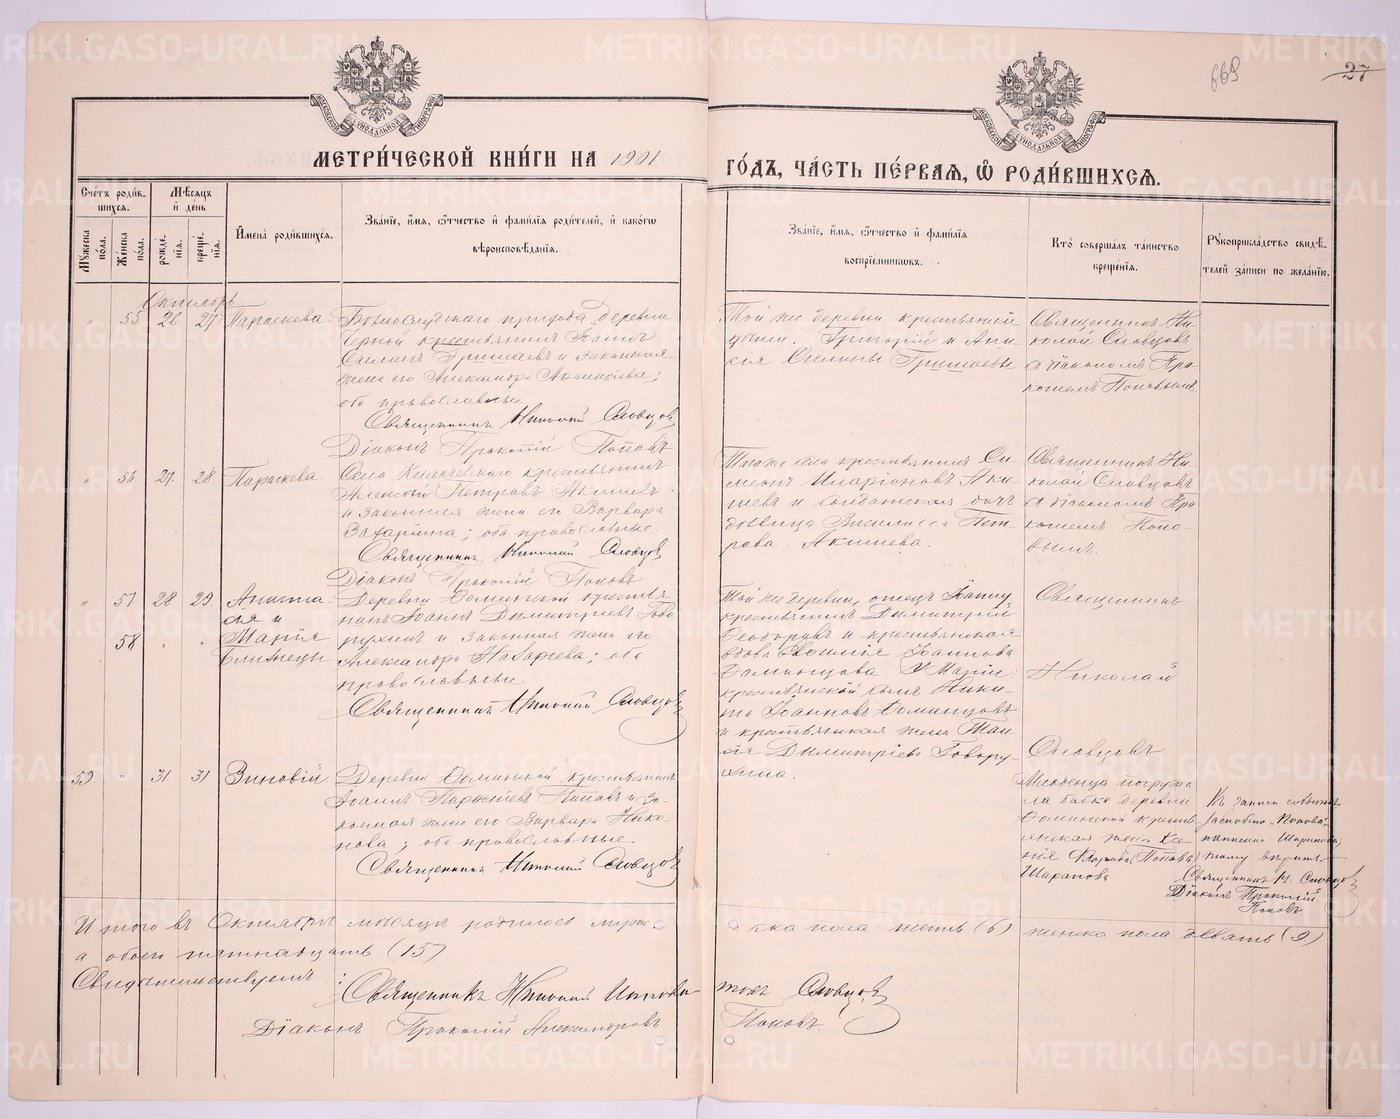 METRIKI.GASO-URAL.RU
669
27
МОСКОВСКОЙ СѴНОДАЛЬНОЙ ТИПОГРАФІИ
МОСКОВСКОЙ СѴНОДАЛЬНОЙ ТИПОГРАФІИ
МЕТРИ́ЧЕСКОЙ КНИ́ГИ НА 1901
ГО́ДЪ, ЧА́СТЬ ПЕ́РВАЯ, Ѡ РОДИ́ВШИХСЯ.
Сче́тъ роди́в-
шихся.
Мꙋжеска по́ла.
Же́нска по́ла.
Мѣ́сяцъ
и де́нь
рожде́-
нїя.
креще́-
нїя.
Имена̀ роди́вшихся.
Зва́нїе, и́мя, ѻ́тчество и фами́лїя роди́телей, и како́гѡ
вѣроисповѣ́данїя.
Зва́нїе, и́мя, ѻ́тчество и фами́лїя
воспрїе́мникѡвъ.
Кто̀ соверша́лъ та́инство
креще́нїя.
Рꙋкоприкла́дство свидѣ́-
телей за́писи по жела́нїю.
Октябрь
" 55 26 27 Параскева.
деревни
Черной крестьянинъ
и законная
жена его Александра
оба православные
Священникъ Николай Словцовъ
Діаконъ Прокопій Поповъ
Той же деревни крестьянской
Григорій и Ани-
сія Силины Гришаевы
Священникъ Ни-
колай Словцовъ
съ діакономъ Про-
копіемъ Поповымъ
" 56 27 28 Параскева.
Села крестьянинъ
Алексій Петровъ Акишевъ
и законная жена его Варвара
Захарина; оба православные.
Священникъ Николай Словцовъ
Діаконъ Прокопій Поповъ
Того же села крестьянинъ Си-
меонъ Иларіоновъ Аки-
шевъ и солдатская дочь
вдовица Василисса Пет-
рова Акишева.
Священникъ Ни-
колай Словцовъ
съ діакономъ Про-
копіемъ Попо-
вымъ.
" 57 28 29 Анаста-
сія и
58 " " Марія
близнецы
Деревни Фоминской крестья-
нинъ Іоаннъ Димитріевъ Гово-
рухинъ и законная жена его
Александра Назарьева; оба
православные.
Священникъ Николай Словцовъ
Той же деревни,
крестьянинъ Димитрій
Феодоровъ и крестьянская
вдова Іоаннова
Фоминцова. У Маріи:
крестьянской сынъ Ники-
та Іоанновъ Фоминцовъ
и крестьянская жена Таи-
сія Димитріева Говору-
хина.
Священникъ
Николай
Словцовъ
59 " 31 31 Зиновій
Деревни Фоминской крестьянинъ
Іоаннъ Поповъ и за-
конная жена его Варвара Нико-
нова; оба православные.
Священникъ Николай Словцовъ
Младенца погружа-
ла бабка деревни
Фоминской кресть-
янская жена Ксе-
нія Попова
Шарапова
Къ записи событія
„Попова"
написано: Шарапова
тому вѣрить
Священникъ Н. Словцовъ
Діаконъ Прокопій
Поповъ
Итого въ Октябрѣ мѣсяцѣ родилось муже-
ска пола шесть (6) женска пола девять (9)
а обоего пятнадцать (15)
Свидѣтельствуемъ:
Священникъ Николай Словцовъ
Діаконъ Прокопій Александровъ Поповъ.